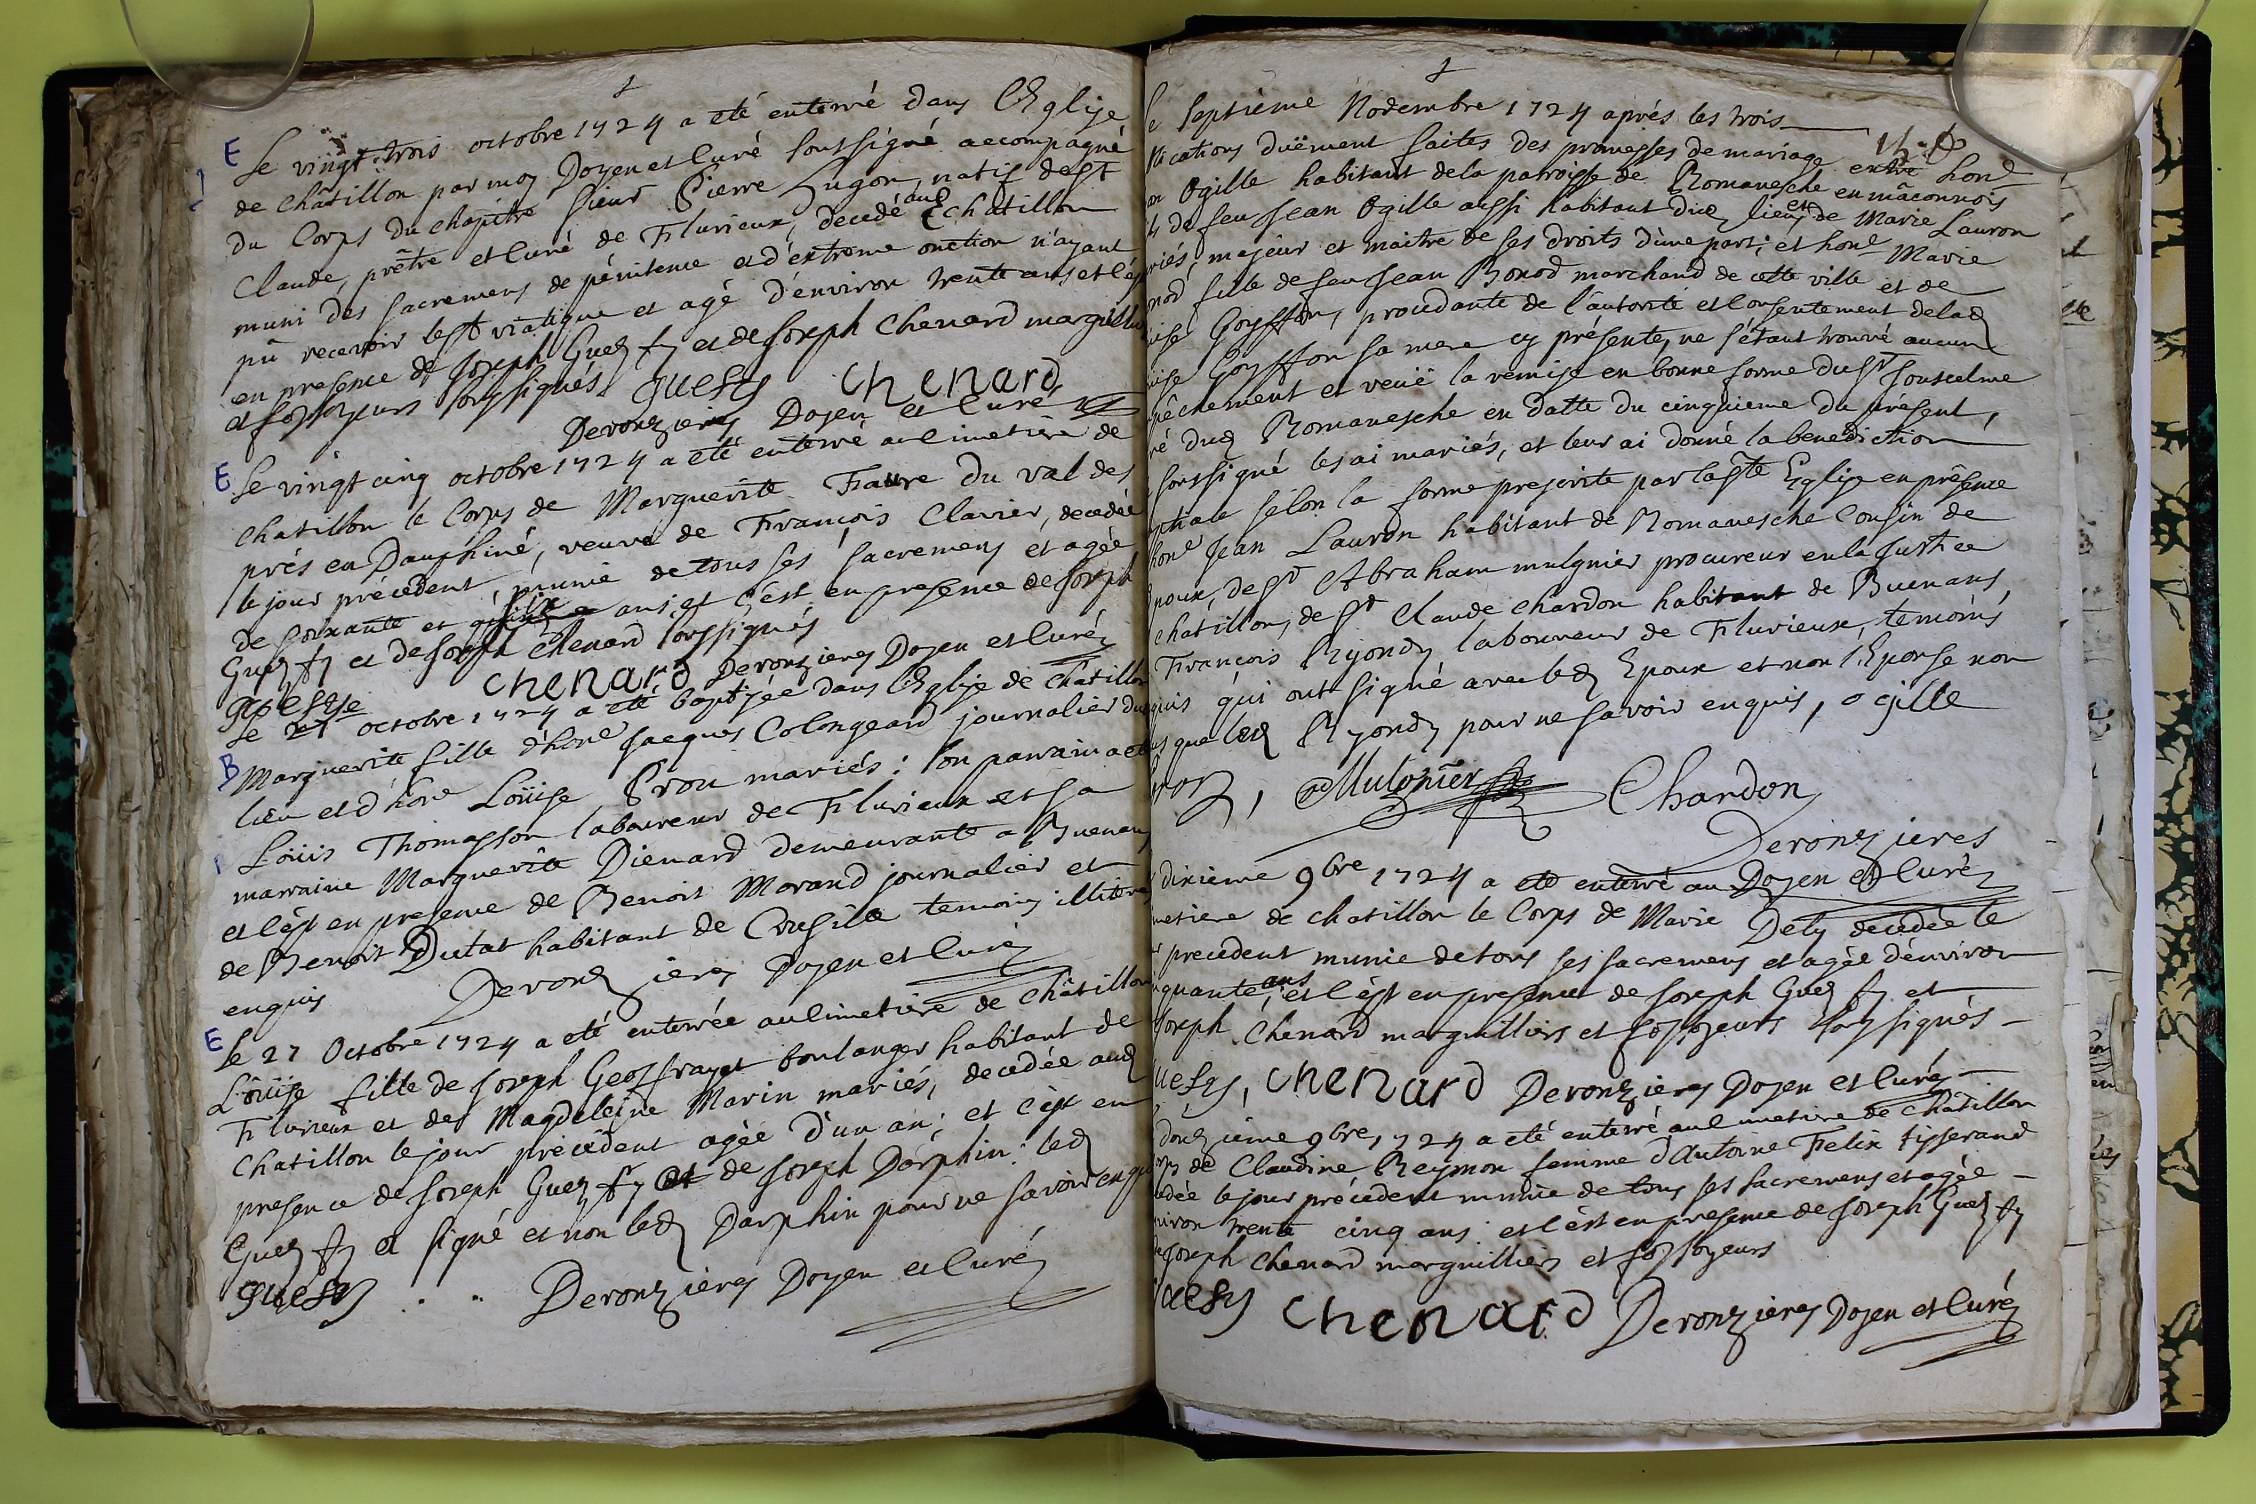 E Le vingt trois octobre 1724 a eté enterré dans l'Eglise
de Châtillon par moy Doyen et Curé soussigné accompagné
du Corps du chapitre sieur Pierre Lugon natif de St
Claude, prêtre et Curé de Flurieux, decedé aud Châtillon
muni des sacremens de pénitence et d'extreme onction n'ayant
pû recevoir le St viatique et agé d'environ trente ans et c'est
en presence de Joseph Guez fy et de Joseph Chenard marguilliers
et fossoyeurs soussignés guesy Chenard
Deronzieres Doyen et Curé
E Le vingt cinq octobre 1724 a eté enterré au Cimetiere de
Chatillon le Corps de Marguerite Faure du val des
prés en Dauphiné, veuve de François Clavier, decedée
le jour précedent, munie de tous ses sacremens et agée
de soixante et dix ans, et c'est en presence de Joseph
Guez fy et de Joseph Chenard soussignés
guesy Chenard Deronzieres Doyen et Curé
Le 27 octobre 1724 a eté baptisée dans l'Eglise de Châtillon
B Marguerite fille d'hone Jacques Colongeard journalier du
lieu et d'hone Loüise Prou mariés: son parrain a eté
Loüis Thomasson laboureur de Flurieux et sa
marraine Marguerite Dienard demeurante a Buenans
et c'est en presence de Benoit Morand journalier et
de Benoit Dutat habitant de Crusille temoins illiterés
enquis Deronzieres Doyen et Curé
E Le 27 Octobre 1724 a eté enterrée au Cimetiere de Châtillon
Loüise fille de Joseph Geoffrayet boulanger habitant de
Flurieux et de Magdeleine Marin mariés, decedée aud
Chatillon le jour précédent agée d'un an; et c'est en
presence de Joseph Guez fy et de Joseph Dorphin: led
Guez fy a signé et non led Dorphin pour ne savoir enquis
guesy Deronzieres Doyen et Curé
Le septième Novembre 1724 aprés les trois
blications duëment faites des promesses de mariage entre hone
Ogille habitant de la paroisse de Romanesche en mâconnois
de feu Jean Ogille aussi habitant dud lieu et de Marie Lauron
riés, majeur et maitre de ses droits d'une part; et hone Marie
nod fille de feu Jean Bonod marchand de cette ville et de
uise Goyffon, procedante de l'autorité et consentement de lad
uise Goyffon sa mere cy présente, ne s'étant trouvé aucun
mpêchement et veuë la remise en bonne forme du Sr Fouscelme
ré dud Romanesche en datte du cinquieme du présent,
soussigné les ai mariés, et leur ai donné la benediction
ptiale sélon la forme prescrite par la Ste Eglise en présence
hone Jean Lauron habitant de Romanesche Cousin de
poux, de Sr Abraham mulgnier procureur en la Justice
chatillon, de Sr Claude Chardon habitant de Buenans,
François Ryondy laboureur de Flurieux, temoins
quis qui ont signé avec led Epoux et non l'Epouse non
us que led Ryondy pour ne savoir enquis, ogille
Mulgnier Chardon
Deronzieres
Doyen et Curé
dixieme 9bre 1724 a eté enterré au
metiere de chatillon le Corps de Marie Dety decedée le
precedent munie de tous ses sacremens et agée d'environ
nquante ans, et c'est en presence de Joseph Guez fy et
Joseph Chenard marguilliers et fossoyeurs soussignés
uesy, Chenard Deronzieres Doyen et Curé
douzième 9bre 1724 a eté enterré au Cimetiere de Châtillon
rps de Claudine Reymon femme d'Antoine Felix tisserand
cedée le jour précedent munie de tous ses sacremens et agée
nviron trente cinq ans: et c'est en presence de Joseph Guez fy
de Joseph Chenard marguilliers et fossoyeurs
uesy Chenard Deronzieres Doyen et Curé